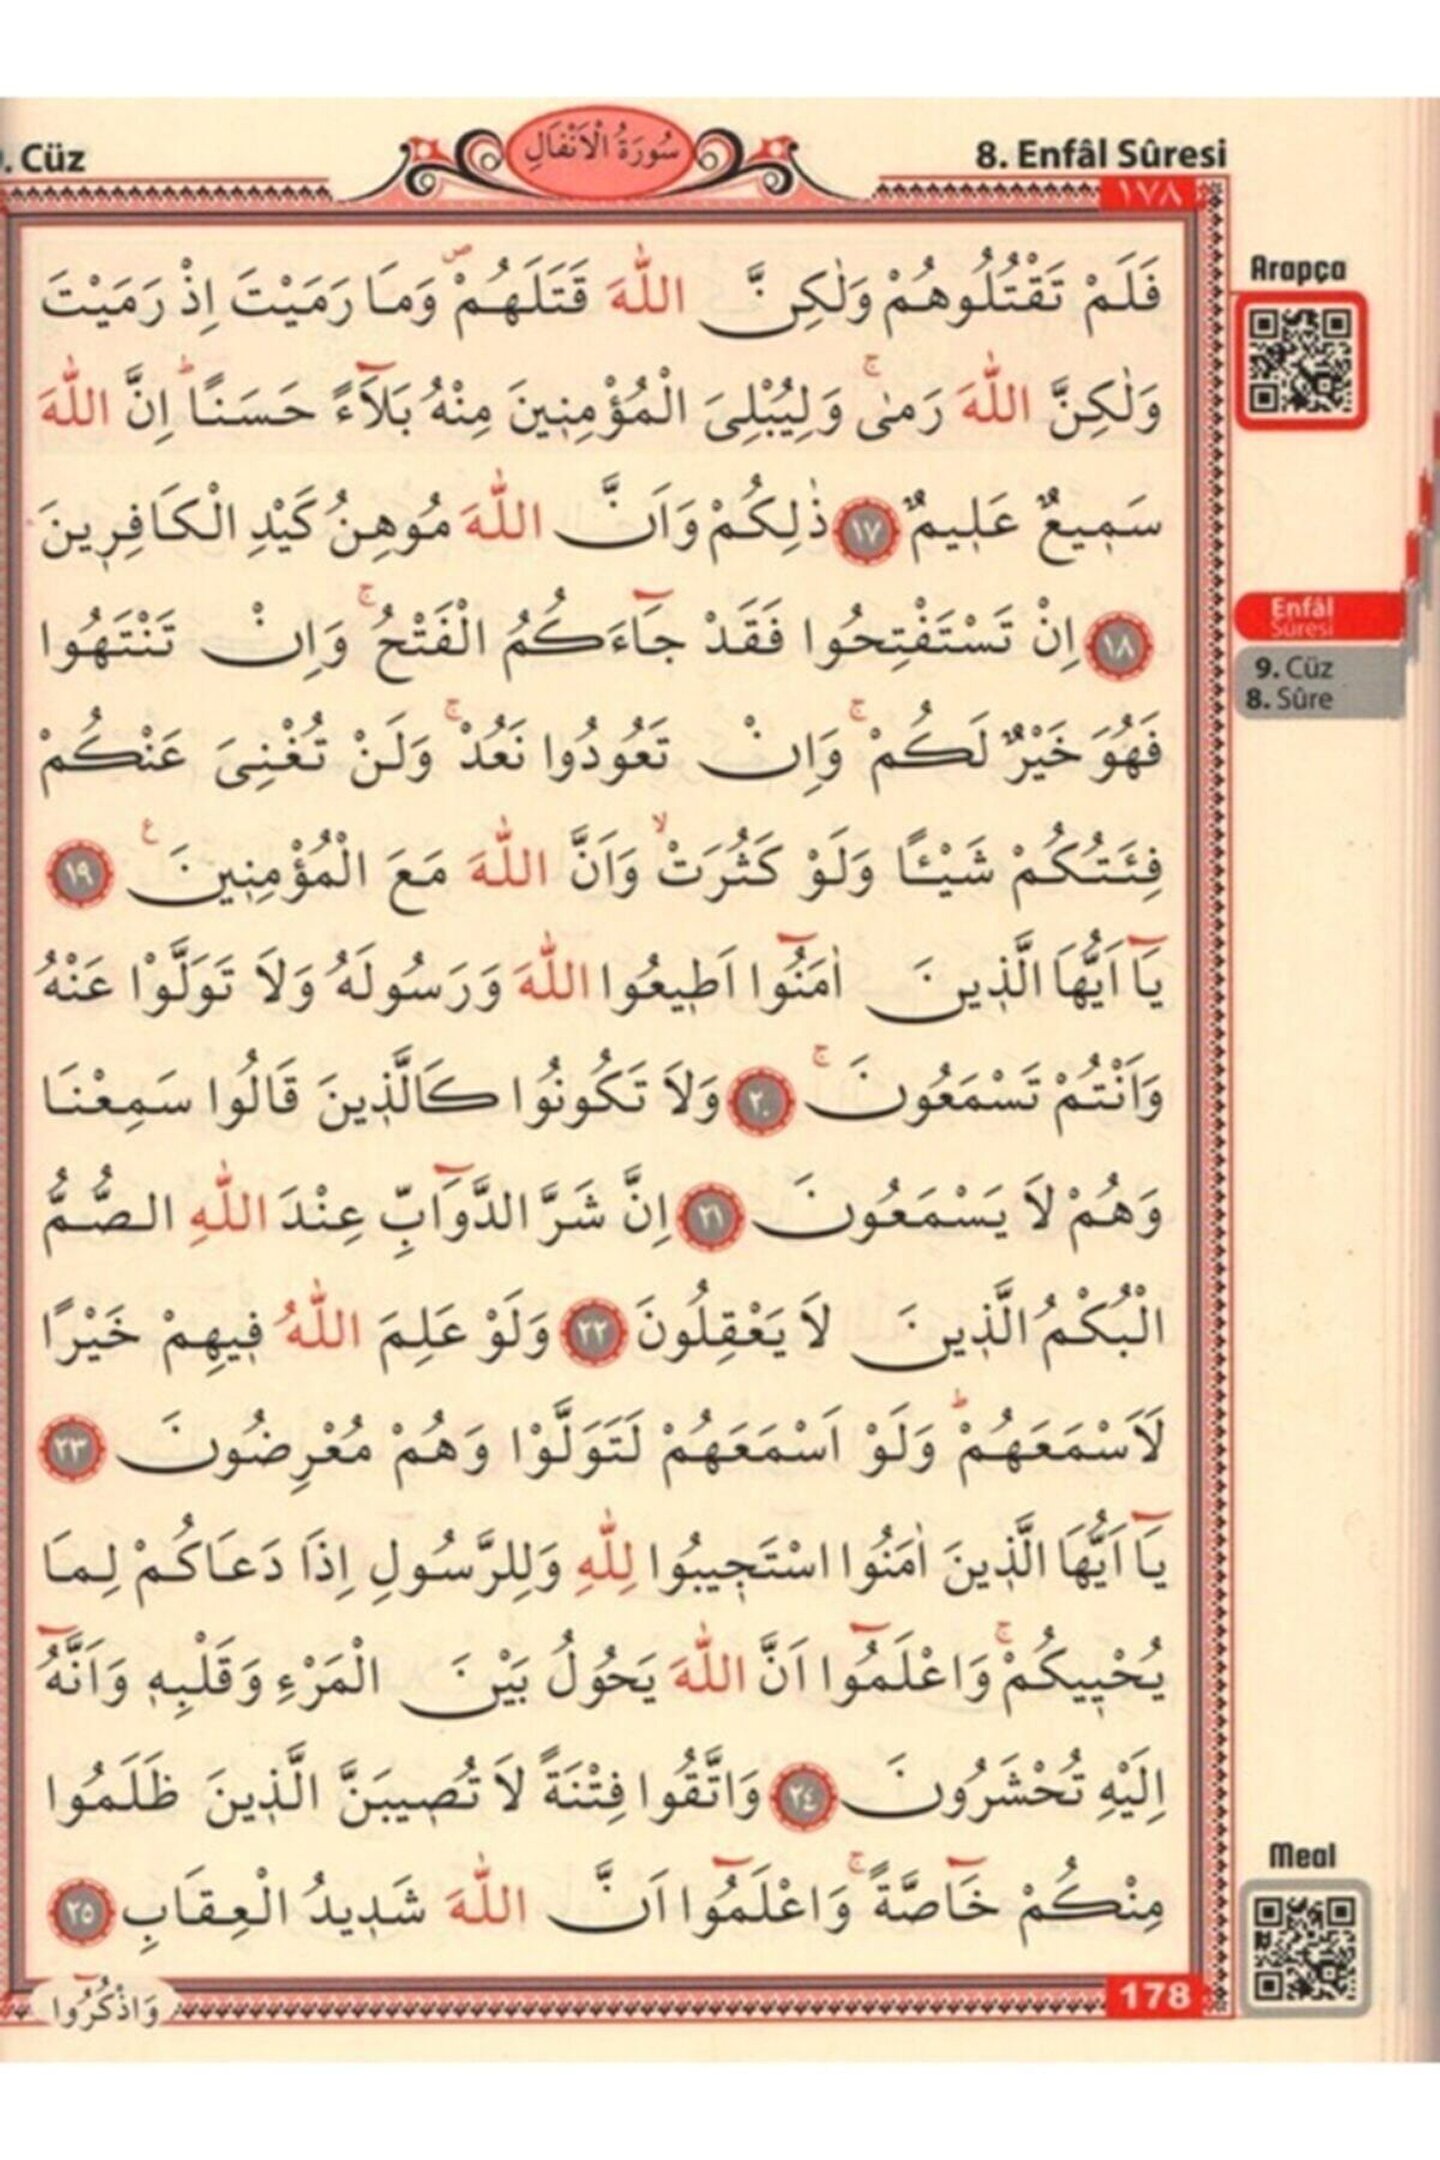 9. Cüz
سُورَةُ الْاَنْفَالِ
8. Enfâl Sûresi
١٧٨
فَلَمْ تَقْتُلُوهُمْ وَلٰكِنَّ اللّٰهَ قَتَلَهُمْۖ وَمَا رَمَيْتَ اِذْ رَمَيْتَ
وَلٰكِنَّ اللّٰهَ رَمٰىۚ وَلِيُبْلِىَ الْمُؤْمِن۪ينَ مِنْهُ بَلَٓاءً حَسَنًاۜ اِنَّ اللّٰهَ
سَم۪يعٌ عَل۪يمٌ ﴿١٧﴾ ذٰلِكُمْ وَاَنَّ اللّٰهَ مُوهِنُ كَيْدِ الْكَافِر۪ينَ
﴿١٨﴾ اِنْ تَسْتَفْتِحُوا فَقَدْ جَٓاءَكُمُ الْفَتْحُۚ وَاِنْ تَنْتَهُوا
فَهُوَ خَيْرٌ لَكُمْۚ وَاِنْ تَعُودُوا نَعُدْۚ وَلَنْ تُغْنِىَ عَنْكُمْ
فِئَتُكُمْ شَيْـًٔا وَلَوْ كَثُرَتْۙ وَاَنَّ اللّٰهَ مَعَ الْمُؤْمِن۪ينَ۟ ﴿١٩﴾
يَٓا اَيُّهَا الَّذ۪ينَ اٰمَنُٓوا اَط۪يعُوا اللّٰهَ وَرَسُولَهُ وَلَا تَوَلَّوْا عَنْهُ
وَاَنْتُمْ تَسْمَعُونَۚ ﴿٢٠﴾ وَلَا تَكُونُوا كَالَّذ۪ينَ قَالُوا سَمِعْنَا
وَهُمْ لَا يَسْمَعُونَ ﴿٢١﴾ اِنَّ شَرَّ الدَّوَٓابِّ عِنْدَ اللّٰهِ الصُّمُّ
الْبُكْمُ الَّذ۪ينَ لَا يَعْقِلُونَ ﴿٢٢﴾ وَلَوْ عَلِمَ اللّٰهُ ف۪يهِمْ خَيْرًا
لَاَسْمَعَهُمْۜ وَلَوْ اَسْمَعَهُمْ لَتَوَلَّوْا وَهُمْ مُعْرِضُونَ ﴿٢٣﴾
يَٓا اَيُّهَا الَّذ۪ينَ اٰمَنُوا اسْتَج۪يبُوا لِلّٰهِ وَلِلرَّسُولِ اِذَا دَعَاكُمْ لِمَا
يُحْي۪يكُمْۚ وَاعْلَمُٓوا اَنَّ اللّٰهَ يَحُولُ بَيْنَ الْمَرْءِ وَقَلْبِه۪ وَاَنَّهُٓ
اِلَيْهِ تُحْشَرُونَ ﴿٢٤﴾ وَاتَّقُوا فِتْنَةً لَا تُص۪يبَنَّ الَّذ۪ينَ ظَلَمُوا
مِنْكُمْ خَٓاصَّةًۚ وَاعْلَمُٓوا اَنَّ اللّٰهَ شَد۪يدُ الْعِقَابِ ﴿٢٥﴾
وَاذْكُرُٓوا
178
Arapça
Enfâl
Sûresi
9. Cüz
8. Sûre
Meal